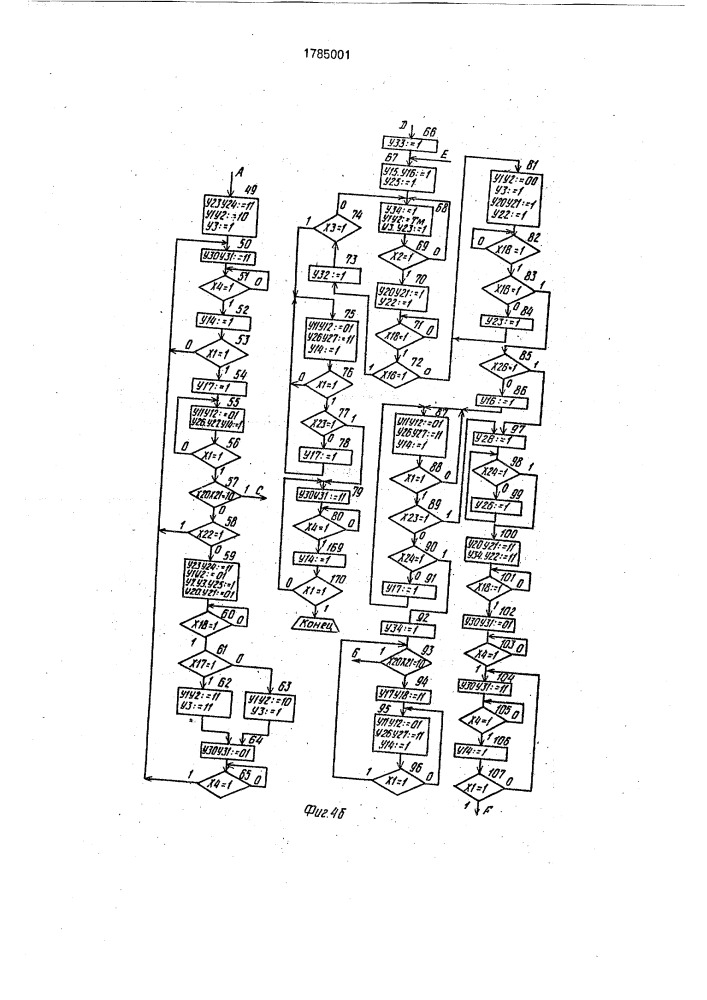 1785001
A
49
У23У24:=11
У1У2:=10
У3:=1
50
У30У31:=11
51
X4=1
0
1
52
У14:=1
53
X1=1
0
1
54
У17:=1
55
У11У12:=01
У26.У27.У14:=1
56
X1=1
0
1
57
X20X21=10
1
C
0
58
X22=1
1
0
59
У23У24:=11
У1У2:=01
У20.У21:=01
60
X18=1
0
1
61
X17=1
0
1
62
У1У2:=11
У3:=11
63
У1У2:=10
У3:=1
64
У30У31:=01
65
X4=1
0
1
0
74
X3=1
1
73
У32:=1
75
У11У12:=01
У26У27:=11
У14:=1
76
X1=1
0
1
77
X23=1
1
0
78
У17:=1
79
У30У31:=11
80
X4=1
0
1
169
У14:=1
170
X1=1
0
1
Конец
D
66
У33:=1
E
67
У15.У16:=1
У25:=1
68
У34:=1
У1У2:=Тм
У3.У23:=1
69
X2=1
0
1
70
У20У21:=1
У22:=1
71
X18=1
0
1
72
X16=1
1
0
87
У11У12:=01
У26У27:=11
У14:=1
88
X1=1
0
1
89
X23=1
1
0
90
X24=1
1
0
91
У17:=1
92
У34:=1
93
X20X21=10
1
0
94
У17У18:=11
95
У11У12:=01
У26У27:=11
У14:=1
96
X1=1
1
0
81
У1У2:=00
У3:=1
У20У21:=1
У22:=1
82
X18=1
0
1
83
X16=1
1
0
84
У23:=1
85
X26=1
1
0
86
У16:=1
97
У28:=1
98
X24=1
1
0
99
У26:=1
100
У20У21:=11
У34.У22:=11
101
X18=1
0
1
102
У30У31:=01
103
X4=1
0
1
104
У30У31:=11
105
X4=1
0
1
106
У14:=1
107
X1=1
0
1
F
Фиг.4б